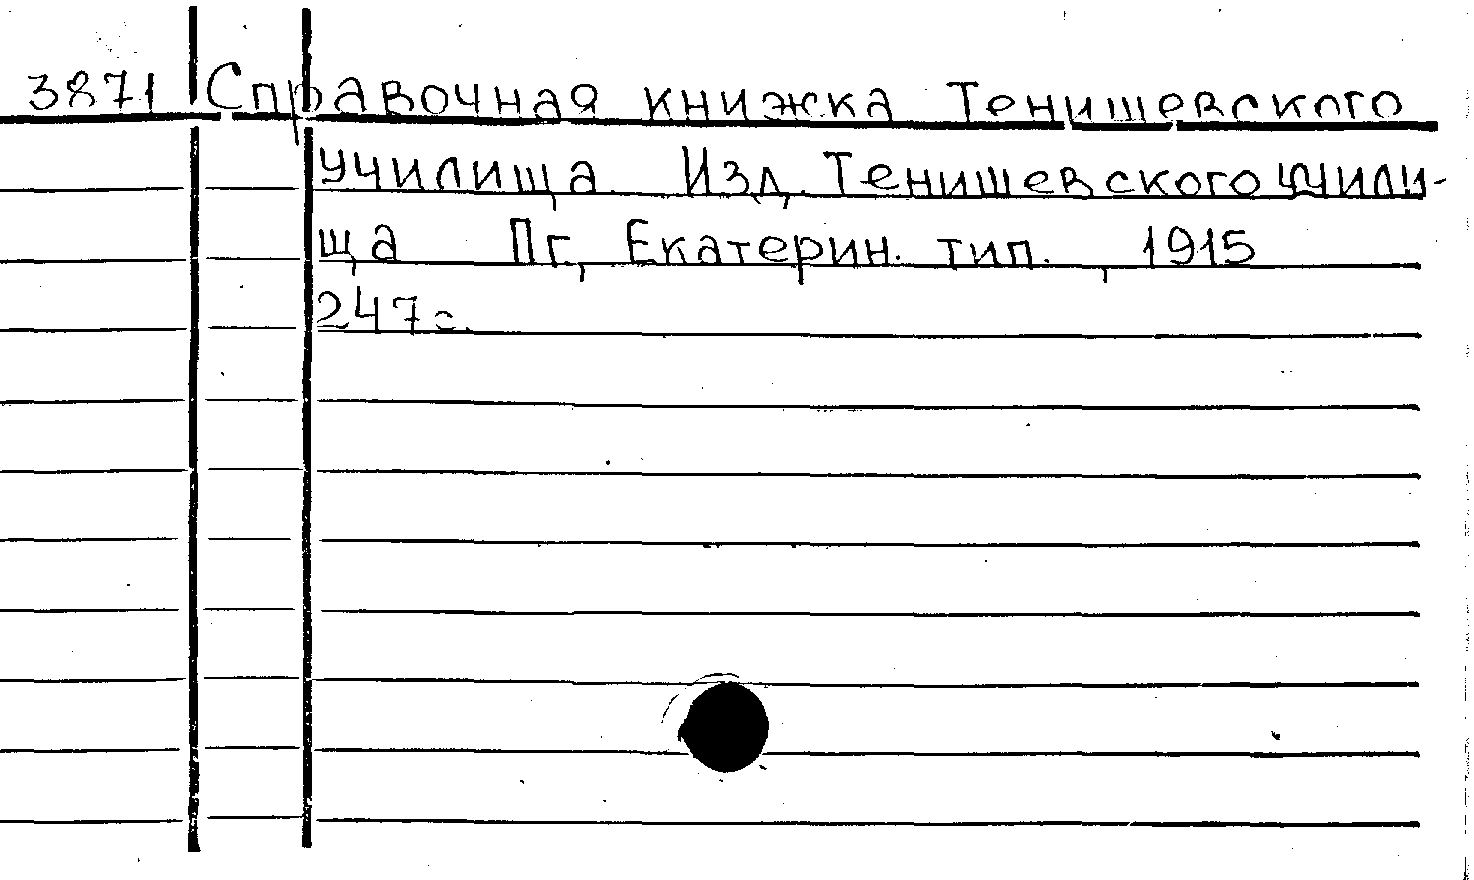 3871 Справочная книжка Тенишевского
училища. Изд. Тенишевского учили-
ща Пг., Екатерин. тип., 1915
247с.